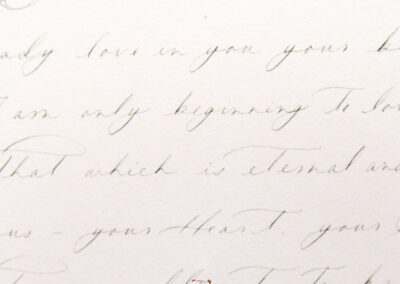 love in you your
I am only beginning to
that which is eternal and
us - your Heart. your